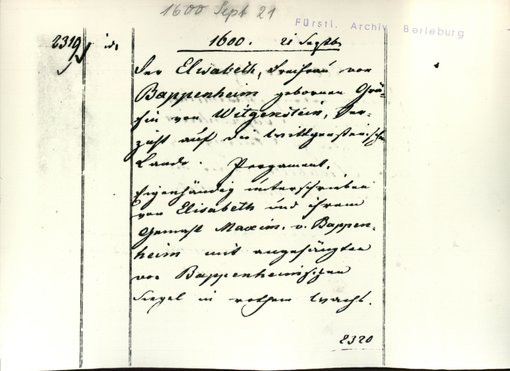 1600 Sept 21
Fürstl. Archiv Berleburg
2319
1600. 21 Septbr.
Der Elisabeth, Freifrau von
Bappenheim gebornen Grä-
fin von Witgenstein, Ver-
zicht auf die wittgensteinische
Lande. Pergament.
Eigenhändig unterschrieben
von Elisabeth und ihrem
Gemahl Maxim. v. Bappen-
heim mit angehängten
von Bappenheimischen
Siegel in rothem Wachs.
2320